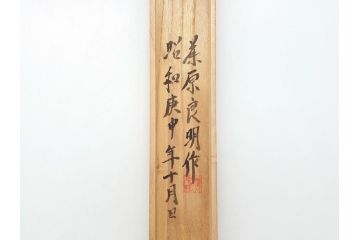 原良明作
昭和庚申年十月日